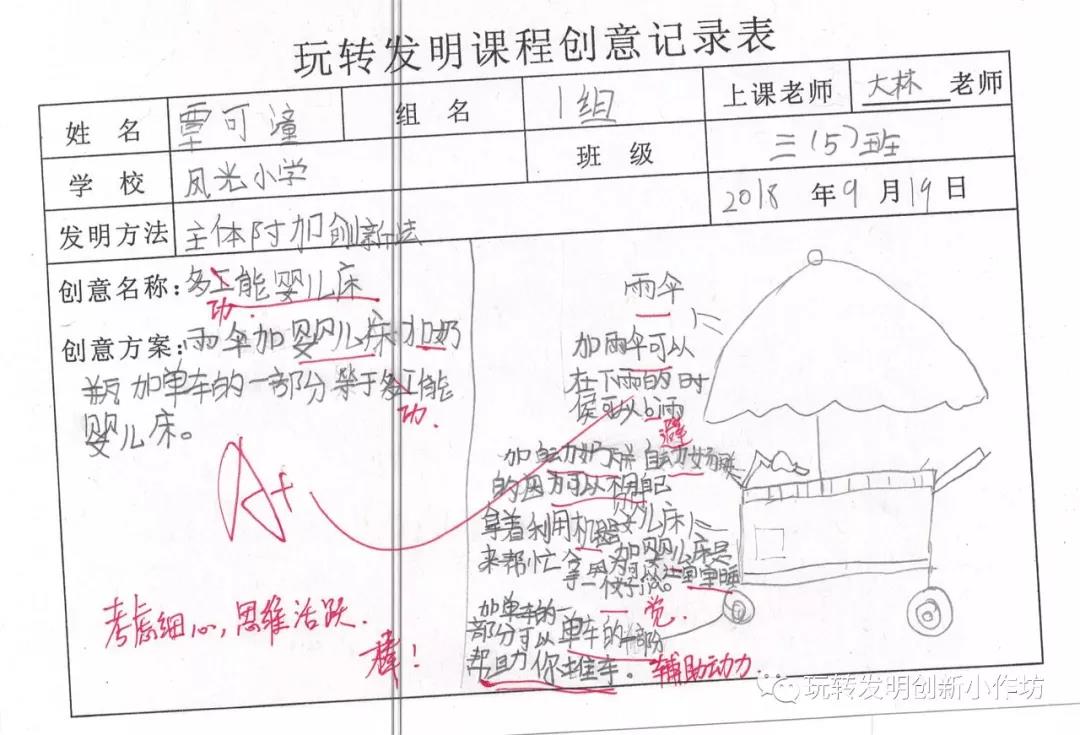 玩转发明课程创意记录表
姓 名 覃可潼 组 名 1组 上课老师 大林 老师
学 校 凤光小学 班 级 三(5)班
发明方法 主体附加创新法 2018 年 9 月 19 日
创意名称:多工能婴儿床
功.
创意方案:雨伞加婴儿床加奶
瓶加单车的一部分等于多工能
功.
婴儿床。
A+
考虑细心,思维活跃.
棒!
雨伞
加雨伞可以
在下雨的时
侯可以
避
加自动奶瓶 自动奶瓶
的因为可以不用自己
拿着利用机器 婴儿床
来帮忙拿
加婴儿床是
因为可以让宝宝睡
一个好
觉.
加单车的一
部分可以 单车的一部份
帮助你推车。辅助动力...
玩转发明创新小作坊